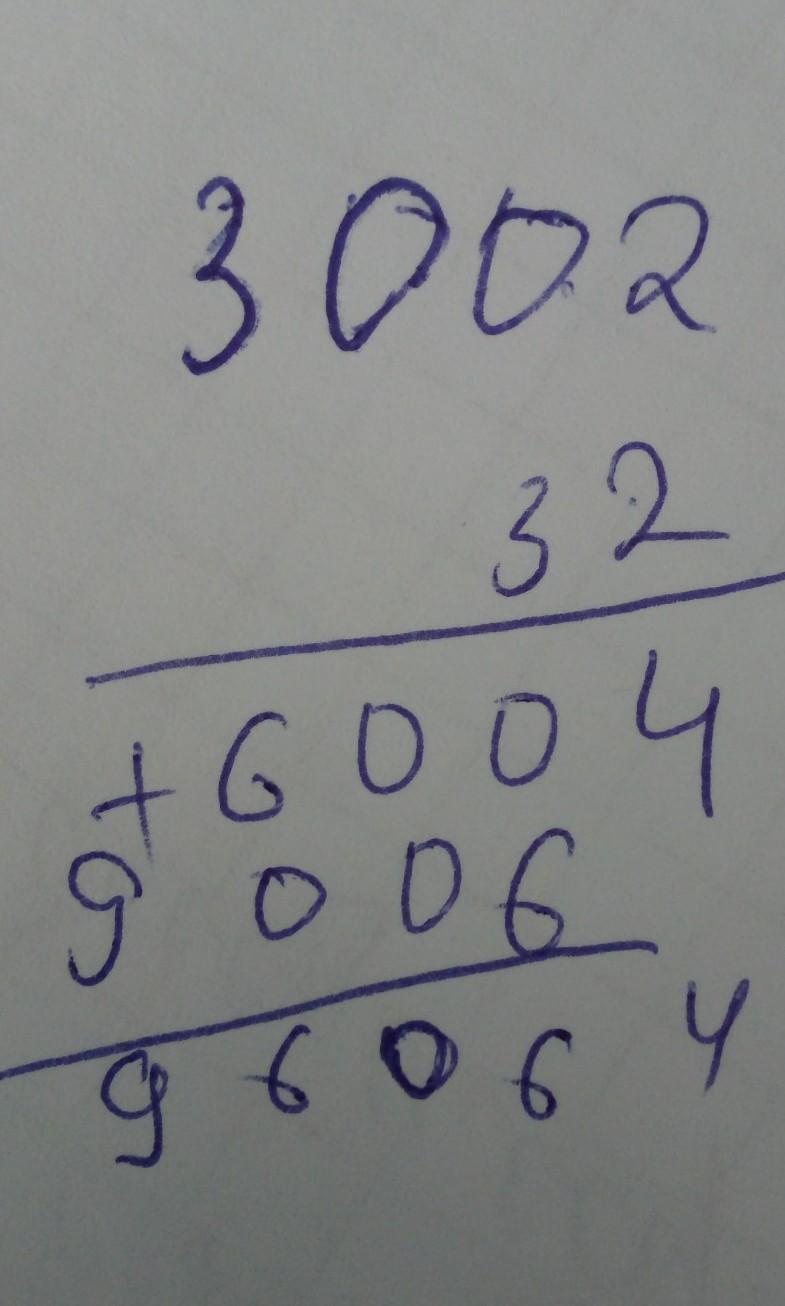 3002
32
+6004
9006
96064